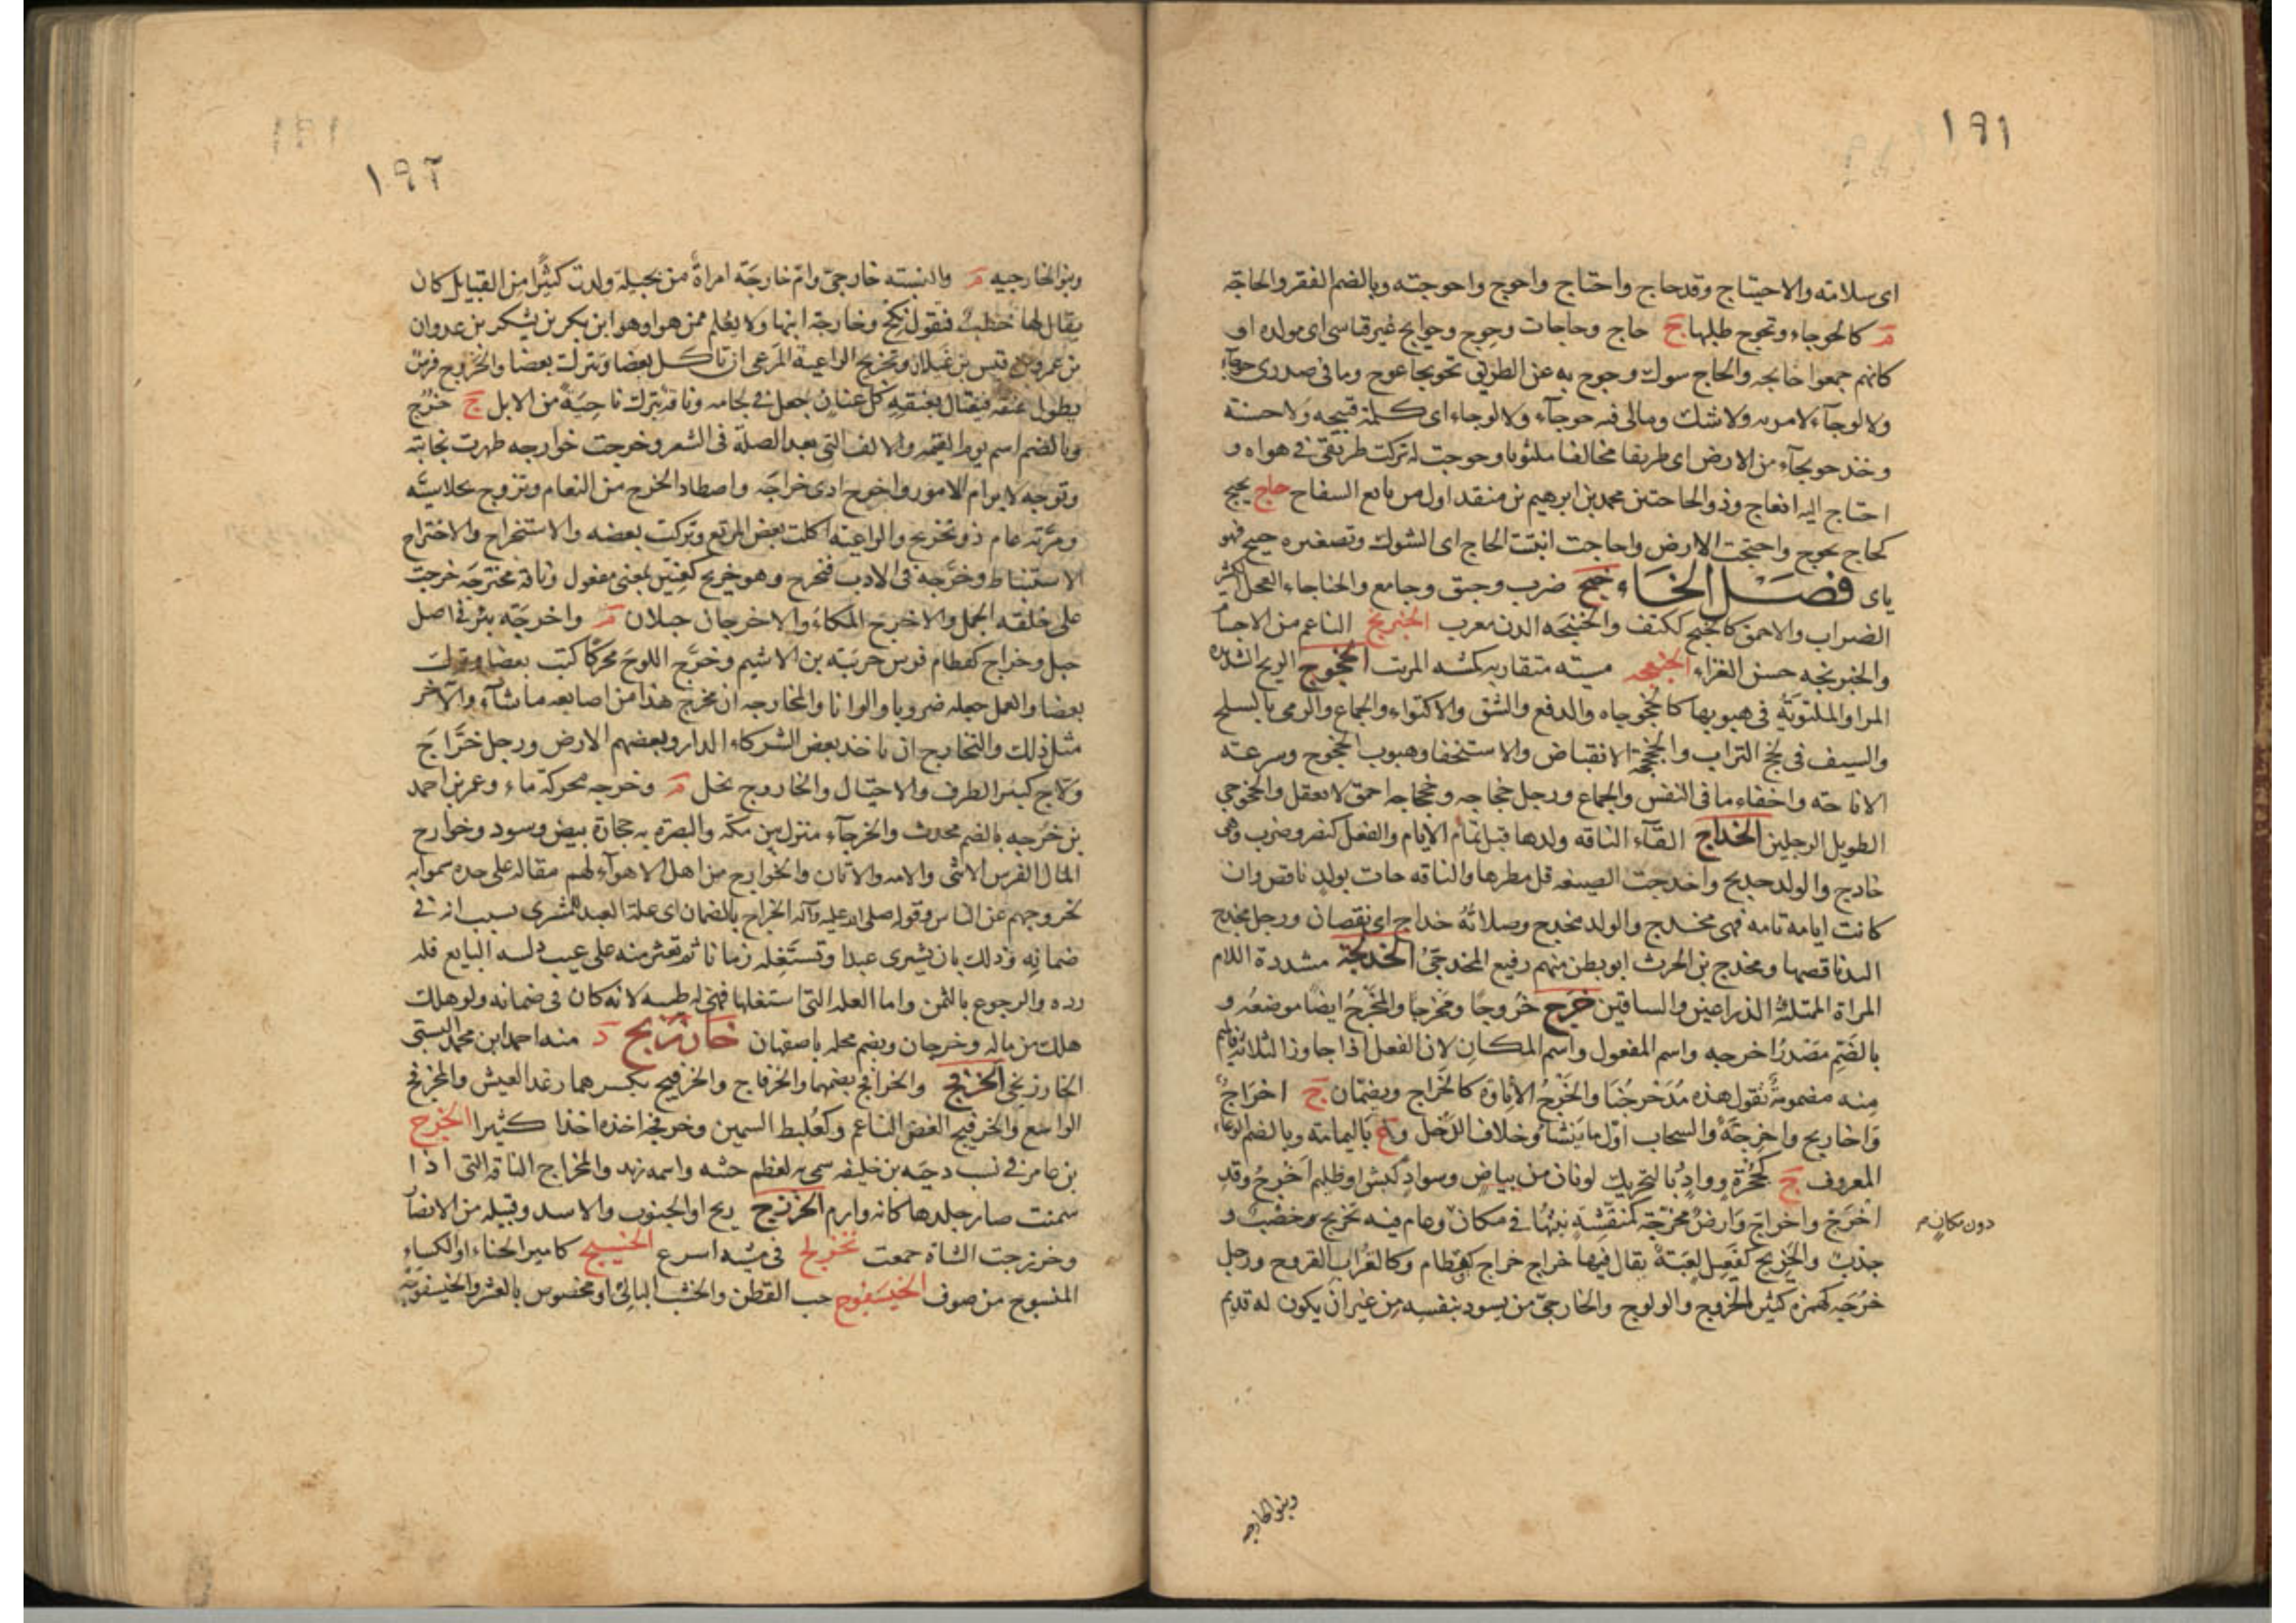 ١٩١
اى سلامته والاحتياج وقد حاج واحتاج واحوج واحوجته وبالضم الفقر والحاجة
م كالحوجاء وتحوج طلبها ج حاج وحاجات وحوج وحوايج غير قياسى اى مولده او
كانهم جمعوا حايجه والحاج سوك وحوج به عن الطريق تحويجا عوج وما فى صدرى حوجآء
ولا لوجآء لا مريه ولا شك ومالى فيه حوجآء ولا لوجاء اى كلمة قبيحه ولا حسنة
وخذ حويجآء من الارض اى طريقا مخالفا ملتويا وحوجت له تركت طريقى فى هواه و
احتاج اليه انعاج وذو الحاجتين محمد بن ابرهيم بن منقد اول من بايع السفاح حاج يحيج
كحاج يحوج واحيجت الارض واحاجت انبتت الحاج اى الشوك وتصغيره حييج فهو
ياى فصل الخاء خبج ضرب وحبق وجامع والخباجاء الفحل الكثير
الضراب والاحمق كالخبج ككتف والخنبجه الدن معرب الخبربج الناعم من الاجسام
والخبربجه حسن الغزاء الخبعجه مشيه متقاربه كمشيه المريب الخجوج الريح الشديده
المر او الملتويَة فى هبوبها كالخجوجاه والدفع والشق والالتواء والجماع والرمى بالسلح
والسيف فى لخ التراب والخجخجة الانقباض والاستخفا وهبوب الخجوج وسرعته
الاناخه واخفاء ما فى النفس والجماع ورجل خجاجه وخجخاجه احمق لا يعقل والخجوجى
الطويل الرجلين الخداج القآء الناقه ولدها قبل تمام الايام والفعل كنصر وضرب وهى
خادج والولد خديج واخدجت الصيفه قل مطرها والناقه جات بولد ناقص وان
كانت ايامه تامه فهى مخدج والولد مخدج وصلاته خداج اى نقصان ورجل مخدج
اليد ناقصها ومخدج بن الحرث ابو بطن منهم رفيع المخدجى الخدلجة مشددة اللام
المراة الممتلئه الذراعين والساقين خرج خروجا ومخرجا والمخرج ايضا موضعه و
بالضم مصدر اخرجه واسم المفعول واسم المكان لان الفعل اذا جاوز الثلاثه فالميم
منه مضمومة تقول هذه مدخرجنا والخرج الاتاوة كالخراج ويضمان ج اخراج
واخاريج واخرجة والسحاب اول ما ينشأ وخلاف الدخل و ع باليمامة وبالضم الوعاء
المعروف ج كحجرة وواد بالتحريك لونان من بياض وسواد كبش او ظليم اخرج وقد
اخرج واخراج وارض مخرجة كمنقشة نبتها فى مكان وعام فيه تخريج وخصب و
دون مكان صح
جذب والخريج كقَعيل لعبة يقال فيها خراج خراج كقطام وكالغراب القروح ورجل
خرجه كهمزه كثير الخروج والولوج والخارجى من يسود بنفسه من غير ان يكون له قديم
وبنو الخارجيه
١٩٢
وبنو الخارجيه م والنسبته خارجى وام خارجة امراة من بجيلة ولدت كثيرا من القبايل كان
يقال لها خطب فتقول نكح وخارجة ابنها ولا يعلم ممن هو او هو ابن بكر بن يشكر بن عدوان
بن عمرو بن قيس بن غيلان وتخريج الراعية المرعى ان تاكل بعضا وتترك بعضا والخروج فرس
يطول عنقه فيغتال بعنقه كل عنان جعل فى لجامه وناقة تبرك ناحية من الابل ج خرج
وبالضم اسم يوم القيمه والالف التى بعد الصلة فى الشعر وخرجت خوارجه ظهرت نجابته
وتوجه لابرام الامور واخرج ادى خراجه واصطاد الخرج من النعام وتزوج بخلاسيه
ومر به عام ذو تخريج والراعية اكلت بعض المرتع وتركت بعضه والاستخراج والاختراج
الاستنباط وخرجه فى الادب فتخرج وهو خريج كعنين بمعنى مفعول وناقة مخترجة خرجت
على خلقة الجمل والاخرج المكاء والاخرجان جبلان م واخرجة بئر فى اصل
جبل وخراج كقطام فرس جريبة بن الاشيم وخرج اللوح مخرجا كتب بعضا وترك
بعضا والعمل جعله ضروبا والوانا والمخارجه ان يخرج هذا من اصابعه ما شآء والآخر
مثل ذلك والتخارج ان ياخذ بعض الشركاء الدار وبعضهم الارض ورجل خراج
ولاج كثير الطرف والاحتيال والخاروج نخل م وخرجه محركة ماء وعمر بن احمد
بن خرجه بالضم محدث والخرجآء منزل بين مكه والبصرة به حجارة بيض وسود وخوارج
المال الفرس الانثى والامه والاتان والخوارج من اهل الاهوآء لهم مقاله على حده سموا به
لخروجهم عن الناس وقوله صلى الله عليه وآله الخراج بالضمان اى علة العبد للمشترى بسبب انه فى
ضمانه وذلك بان يشترى عبدا وتستغله زمانا ثم تعثر منه على عيب دلسه البايع فله
رده والرجوع بالثمن واما العله التى استغلها فهى له طيبه لانه كان فى ضمانه ولو هلك
هلك من ماله وخرجان ويضم محله باصفهان خارزنج د منه احمد ابن محمد البستى
الخارزنجى الخرفج والخرافج بضمهما والخرفاج والخرفيج بكسرهما رغد العيش والمخرفج
الواسع والخرفيج الغض الناعم وكعلبط السمين وخرفجه اخذه اخذا كثيرا الخزج
بن عامر فى نسب دحيه بن خليفه سمى به لعظم جثته واسمه زيد والمخزاج الناقه التى اذا
سمنت صار جلدها كانه وارم الخزرج ريح او الجنوب والاسد وقبيله من الانصار
وخزرجت الشاة خمعت تخزلج فى مشيه اسرع الخسيج كامير الحناء او الكساء
المنسوج من صوف الخيسفوج حب القطن والخشب البالى او مخصوص بالعشر والخيسفوجة